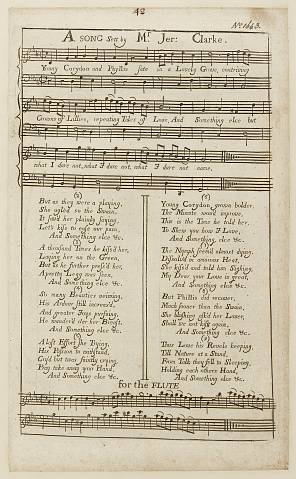 42
No. 1643.
A SONG Sett by Mr. Jer: Clarke.
Young Corydon and Phyllis sate in a Lovely Grove, contriving
Crowns of Lillies, repeating Tales of Love, And Something else but
what I dare not, what I dare not, what I dare not name,
(2)
But as they were a playing,
She ogled so the Swain,
It sav'd her plainly saying,
Let's kiss to ease our pain,
And Something else &c.
(3)
A thousand times he kiss'd her,
Laying her on the Green,
But as he further press'd her,
A pretty Legg was seen,
And Something else &c.
(4)
So many Beauties viewing,
His Ardour still increas'd,
And greater Joys pursuing,
He wander'd o'er her Breast,
And Something else &c.
A last Effort she Trying,
His Passion to withstand,
Cry'd but twas faintly crying,
Pray take away your Hand,
And Something else &c.
(6)
Young Corydon grown bolder,
The Minute would improve,
This is the Time he told her,
To Shew you how I Love,
And Something else &c.
(7)
The Nymph seem'd almost dying,
Dissolv'd in amorous Heat,
She kiss'd and told him Sighing,
My Dear your Love is great,
And Something else &c.
(8)
But Phillis did recover,
Much sooner than the Swain,
She blushing ask'd her Lover,
Shall we not kiss again,
And Something else &c.
(9)
Thus Love his Revels keeping,
Till Nature at a Stand,
From Talk they fell to Sleeping,
Holding each others Hand,
And Something else &c.
for the FLUTE